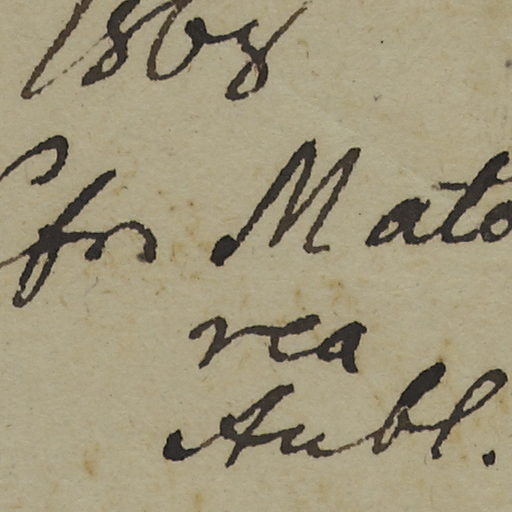 1868
Cfr Mato
rea
Aubl.